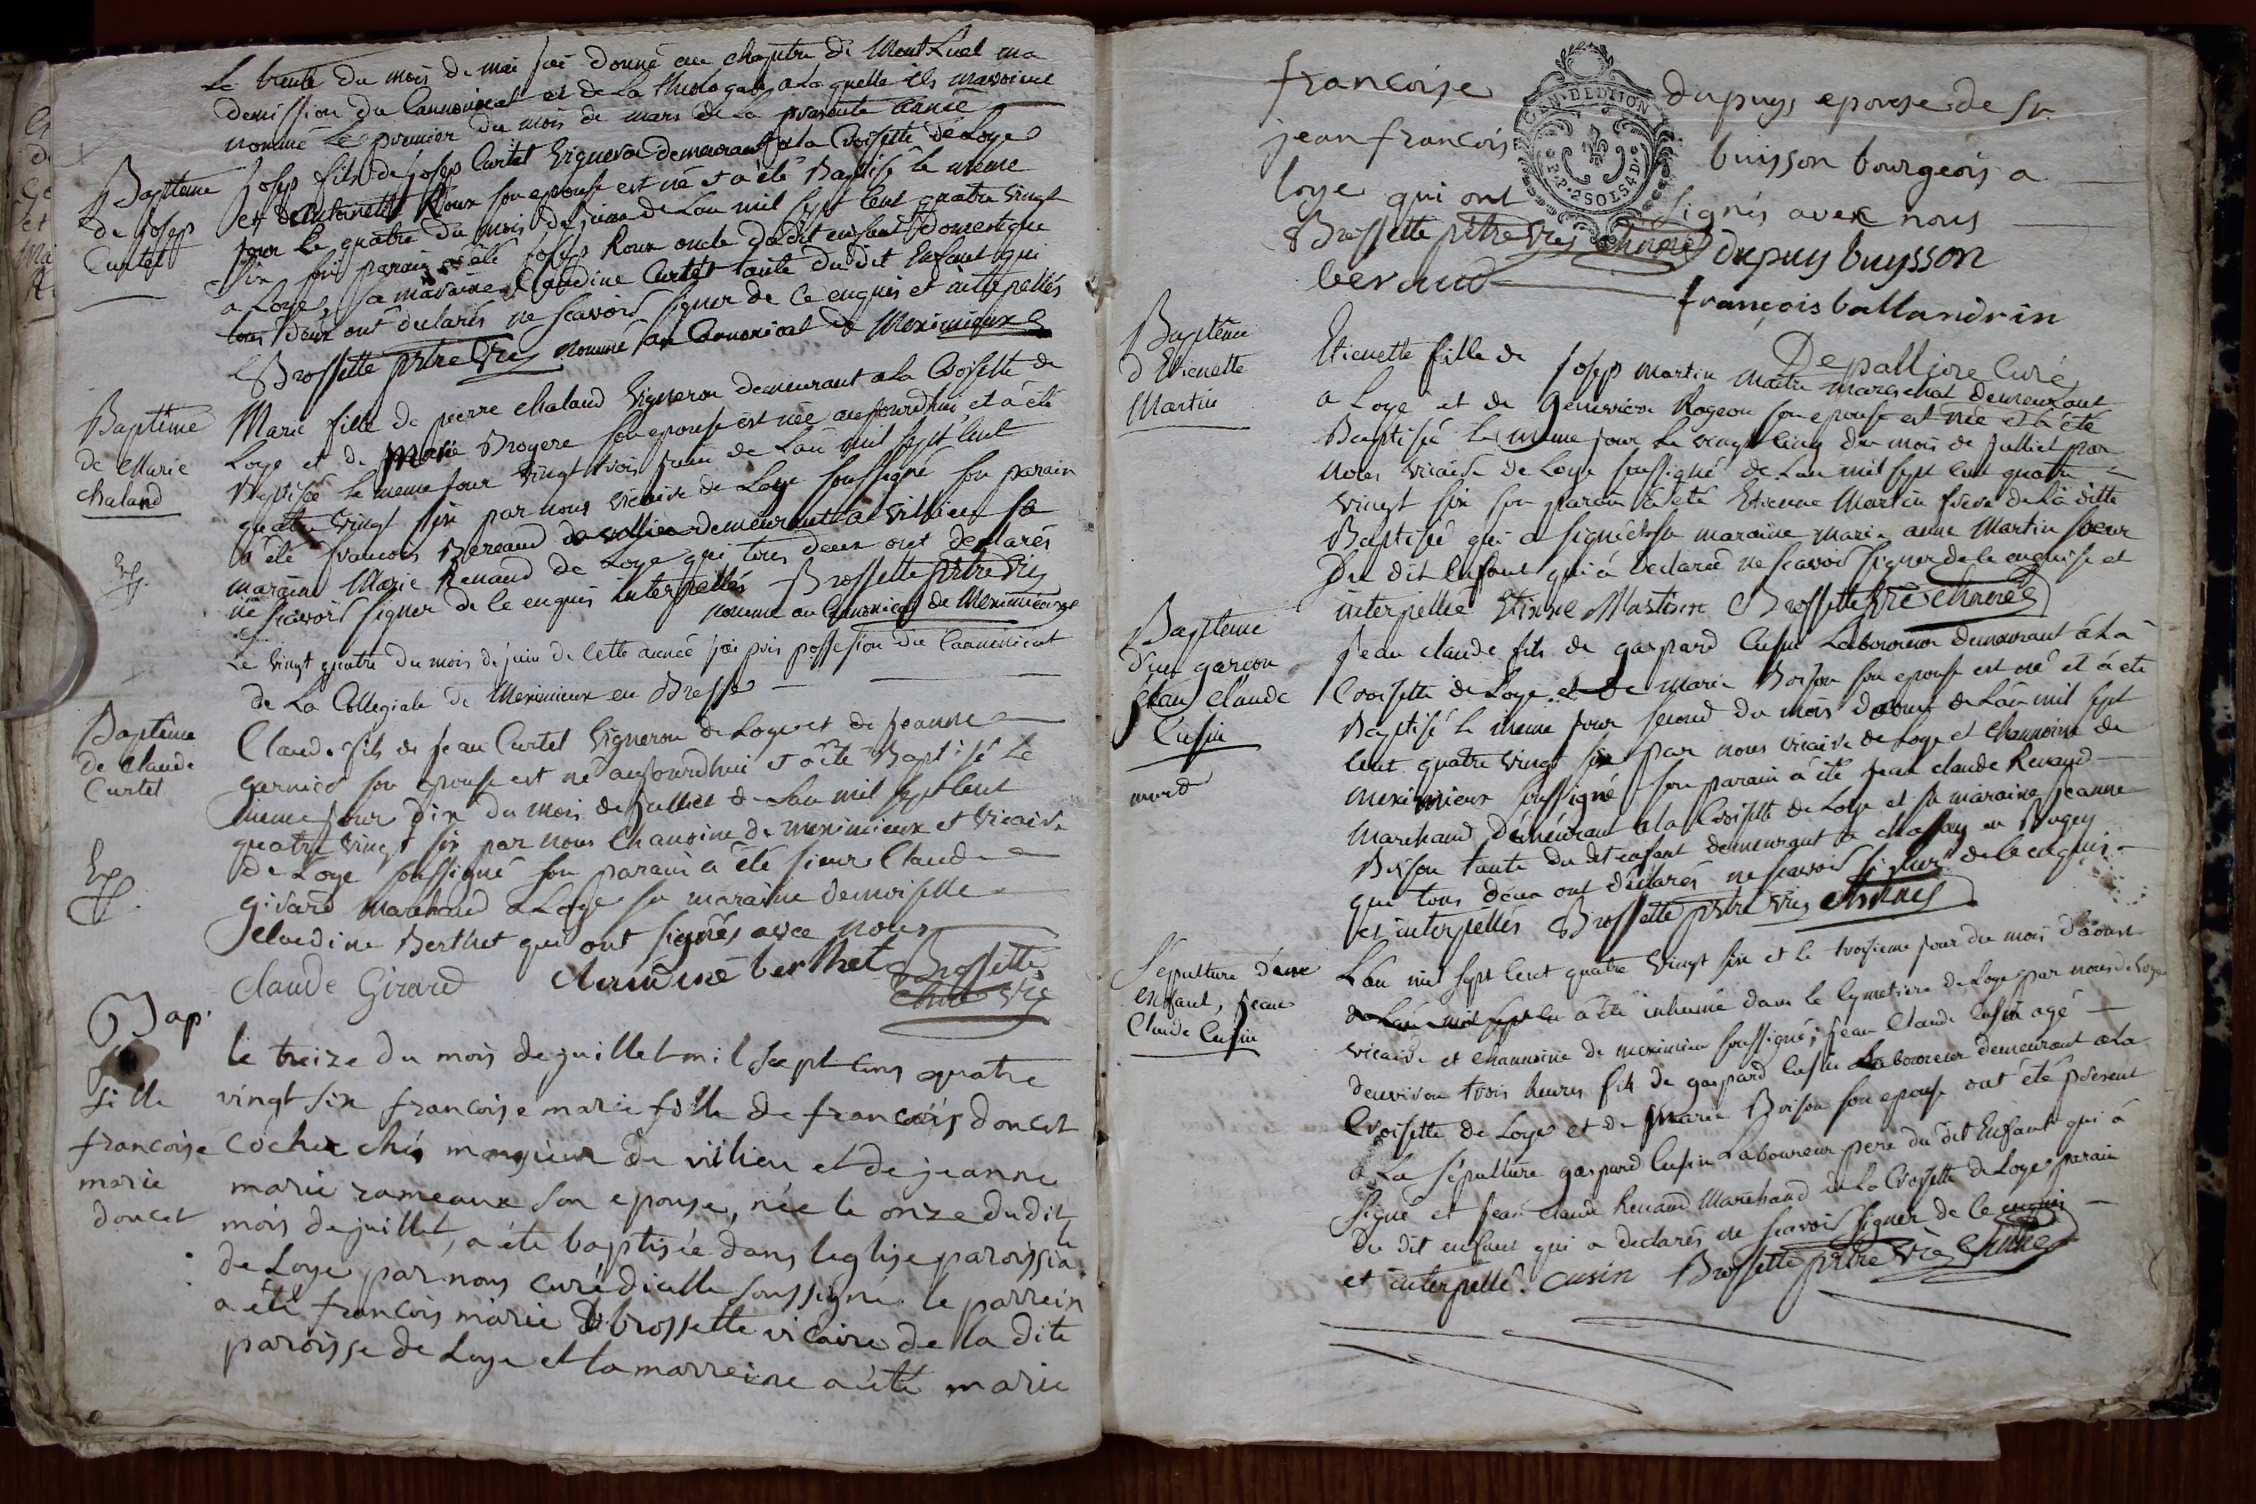 Le trente du mois de mai jai donné au chapitre de MontLuel ma
demission du Cannonicat et de La theologale a La quelle ils mavoient
nommé Le premier du mois de mars de La presente année
Bapteme
de Josep
Curtet
Josep fils de Josep Curtet Vigneron demeurant a La Croisette de Loye
et dantoinette Roux son epouse est né et a été Baptisé le meme
jour le quatre du mois de juin de Lan mil sept cent quatre vingt
six son parain a été Josep Roux oncle du dit enfant domestique
a Loye, sa maraine Claudine Curtet tante du dit Enfant qui
tous deux ont declarés ne scavoir signer de ce enquis et interpellés
Brossette prtre Vre nommé au Cannonicat de Meximieux
Baptême
de Marie
Chaland
Marie fille de pierre chaland Vigneron demeurant a La Croisette de
Loye et de Marie Brogere son epouse est née aujourdhui et a été
Baptisée le meme jour vingt trois juin de Lan mil sept cent
quatre vingt six par nous vicaire de Loye soussigné son parain
a été francois Bereaud demeurant a villieu sa
maraine Marie Renaud de Loye qui tous deux ont declarés
ne scavoir signer de ce enquis interpellés Brossette prtre Vre
nommé au Cannonicat de Meximieux
Le vingt quatre du mois de juin de Cette année jai pris possession du Cannonicat
de La Collegiale de Meximieux en Bresse
Baptême
de Claude
Curtet
Claude fils de jean Curtet Vigneron de Loye et de jeanne
garnier son epouse est né aujourdhui et a été Baptisé Le
meme jour dix du mois de juillet de Lan mil sept cent
quatre vingt six par nous Chanoine de meximieux et Vicaire
de Loye soussigné son parain a été sieur Claude
girard marchand a Loye sa maraine demoiselle
Claudine Berthet qui ont signés avec nous
Claude Girard claudine berthet Brossette
chne Vre
Bap.
fille
francoise
marie
doncet
le treize du mois de juillet mil sept cens quatre
vingt six francoise marie fille de francois doncet
cocher chés monsieur de vilieu et de jeanne
marie rameaux son epouse, née le onze dudit
mois de juillet, a été baptisée dans leglise paroissiale
de Loye par nous curé dicelle soussigné le parrein
a été francois marie brossette vicaire de la dite
paroisse de Loye et la marreine a été marie
francoise dupuys epouse de sr.
jean francois buisson bourgeois a
loye qui ont signés avec nous
GEN. DE DIJON
P.P. 2 SOLS 4 D.
Brossette prtre Vre chnne dupuy buysson
beraud
françois ballandrin
Depalliere Curé
Baptême
d'Etienette
Martin
Etienette fille de Josep Martin Maitre marechat demeurant
a Loye et de genevieve Rogeon son epouse est née et a été
Baptisée le meme jour le vingt cinq du mois de juillet par
nous vicaire de Loye soussigné de Lan mil sept cent quatre
vingt six son parain a été Etienne Martin frere de La ditte
Baptisée qui a signé et sa maraine marie anne Martin soeur
du dit Enfant qui a declaré ne scavoir signer de ce enquise et
interpellée Etinne Martin Brossette Vre chnne
Bapteme
d'un garçon
Jean Claude
Cusin
mort
Jean claude fils de gaspard Cusin Laboureur demeurant a La
Croisette de Loye et de Marie Boison son epouse est né et a été
Baptisé le meme jour second du mois daoust de Lan mil sept
cent quatre vingt six par nous vicaire de Loye et Chanoine de
meximieux soussigné son parain a été jean claude Renaud
marchand demeurant a la Croisette de Loye et sa maraine jeanne
Boison tante du dit enfant demeurant a chassay en Bugey
qui tous deux ont declarés ne scavoir signer de ce enquis
et interpellés Brossette prtre Vre chnne
Sépulture d'un
enfant, Jean
Claude Cusin
L'an mil sept cent quatre vingt six et le troisieme jour du mois d'aoust
a été inhumé dans le Cymetiere de Loye par nous de Loye
vicaire et channoine de meximieux soussigné, jean Claude Cusin agé
denviron trois heures fils de gaspard Cusin Laboureur demeurant a La
Croisette de Loye et de Marie Boison son epouse ont été présent
a La Sépulture gaspard Cusin Laboureur pere du dit Enfant qui a
Signé et jean claude Renaud Marchand a La Croisette de Loye parain
du dit enfant qui a declarés ne scavoir signer de ce enquis
et interpellé. cusin Brossette prtre Vre chnne